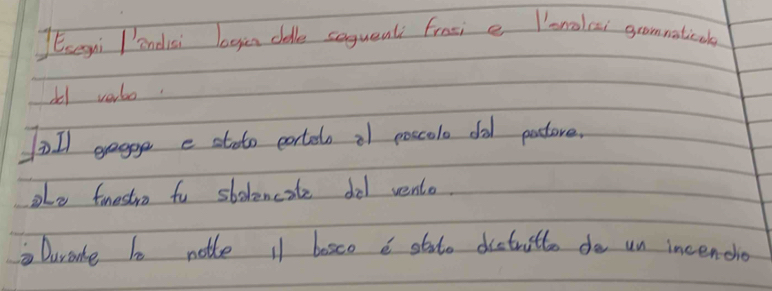 Esegui l'analisi logica delle seguenti frasi e l'analisi grammaticale
del verbo.
Il gregge e stato portato al pascolo dal pastore.
La finestra fu sbalancata dal vento.
Durante la notte il bosco é stato distrutto da un incendio